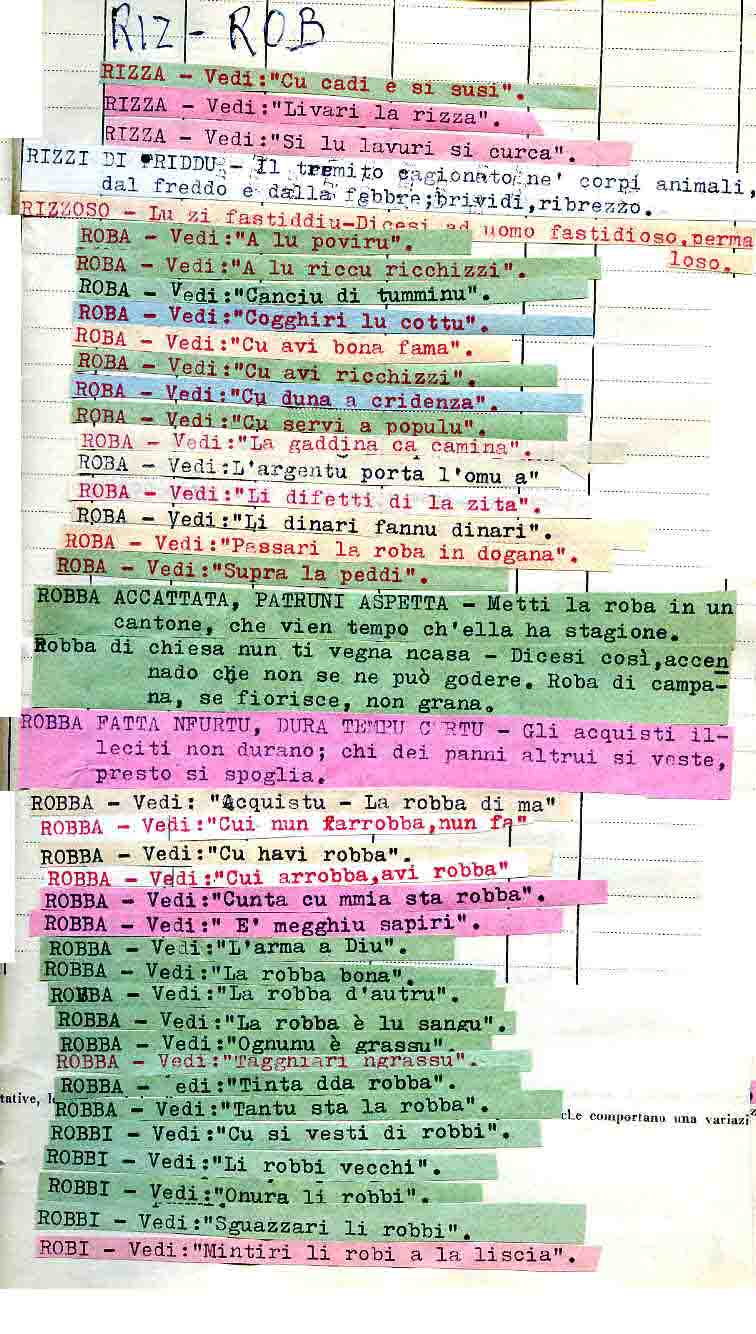 RIZ - ROB
RIZZA - Vedi:"Cu cadi e si susi".
RIZZA - Vedi:"Livari la rizza".
RIZZA - Vedi:"Si lu lavuri si curca".
RIZZI DI FRIDDU - Il tremito cagionato ne' corpi animali,
dal freddo e dalla febbre; brividi, ribrezzo.
RIZZOSO - Lu zi fastiddiu-Dicesi ad uomo fastidioso, perma
loso.
ROBA - Vedi:"A lu poviru".
ROBA - Vedi:"A lu riccu ricchizzi".
ROBA - Vedi:"Canciu di tumminu".
ROBA - Vedi:"Cogghiri lu cottu".
ROBA - Vedi:"Cu avi bona fama".
ROBA - Vedi:"Cu avi ricchizzi".
ROBA - Vedi:"Cu duna a cridenza".
ROBA - Vedi:"Cu servi a populu".
ROBA - Vedi:"La gaddina ca camina".
ROBA - Vedi:L'argentu porta l'omu a"
ROBA - Vedi:"Li difetti di la zita".
ROBA - Vedi:"Li dinari fannu dinari".
ROBA - Vedi:"Passari la roba in dogana".
ROBA - Vedi:"Supra la peddi".
ROBBA ACCATTATA, PATRUNI ASPETTA - Metti la roba in un
cantone, che vien tempo ch'ella ha stagione.
Robba di chiesa nun ti vegna ncasa - Dicesi così, accen
nado che non se ne può godere. Roba di campa-
na, se fiorisce, non grana.
ROBBA FATTA NFURTU, DURA TEMPU C RTU - Gli acquisti il-
leciti non durano; chi dei panni altrui si veste,
presto si spoglia.
ROBBA - Vedi: "Acquistu - La robba di ma"
ROBBA - Vedi:"Cui nun farrobba,nun fa"
ROBBA - Vedi:"Cu havi robba".
ROBBA - Vedi:"Cui arrobba,avi robba"
ROBBA - Vedi:"Cunta cu mmia sta robba".
ROBBA - Vedi:" E' megghiu sapiri".
ROBBA - Vedi:"L'arma a Diu".
ROBBA - Vedi:"La robba bona".
ROBBA - Vedi:"La robba d'autru".
ROBBA - Vedi:"La robba è lu sangu".
ROBBA - Vedi:"Ognunu è grassu".
ROBBA - Vedi:"Tagghiari ngrassu".
ROBBA - edi:"Tinta dda robba".
tative,
ROBBA - Vedi:"Tantu sta la robba".
che comportano una variazi
ROBBI - Vedi:"Cu si vesti di robbi".
ROBBI - Vedi:"Li robbi vecchi".
ROBBI - Vedi:"Onura li robbi".
ROBBI - Vedi:"Sguazzari li robbi".
ROBI - Vedi:"Mintiri li robi a la liscia".